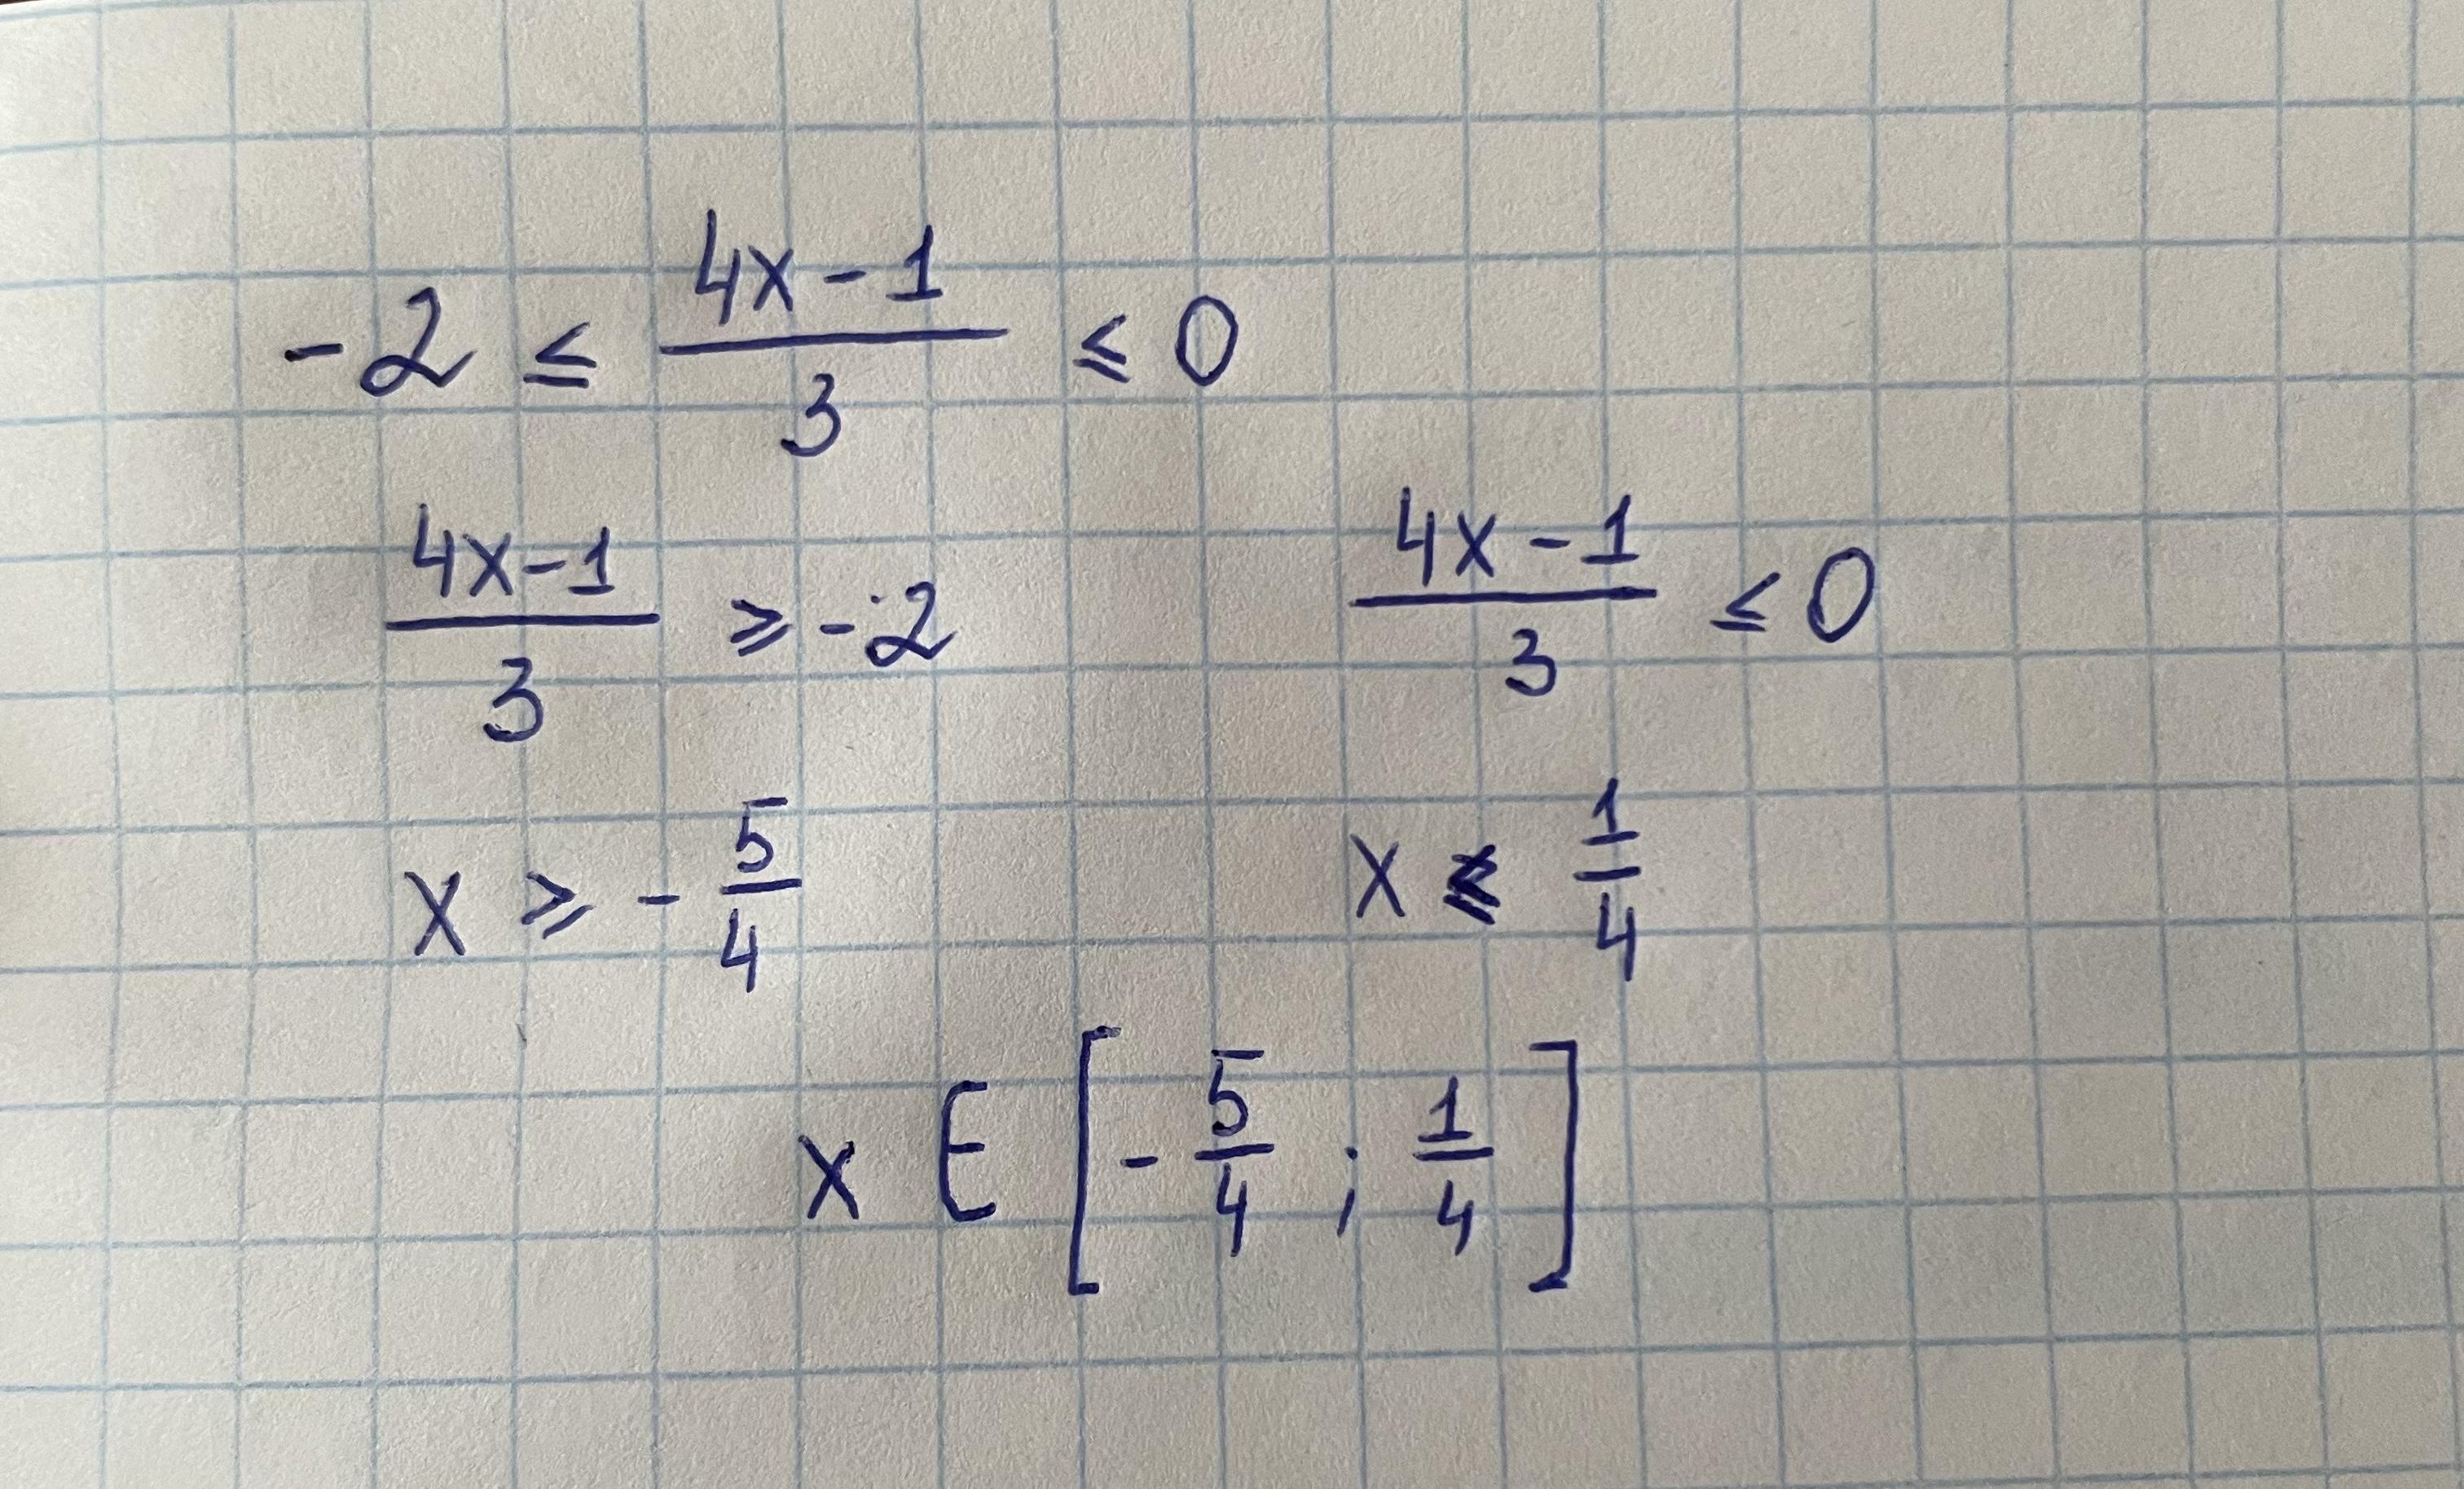 -2 ≤ (4x-1)/3 ≤ 0
(4x-1)/3 ≥ -2    (4x-1)/3 ≤ 0
x ≥ -5/4    x ≤ 1/4
x ∈ [-5/4 ; 1/4]